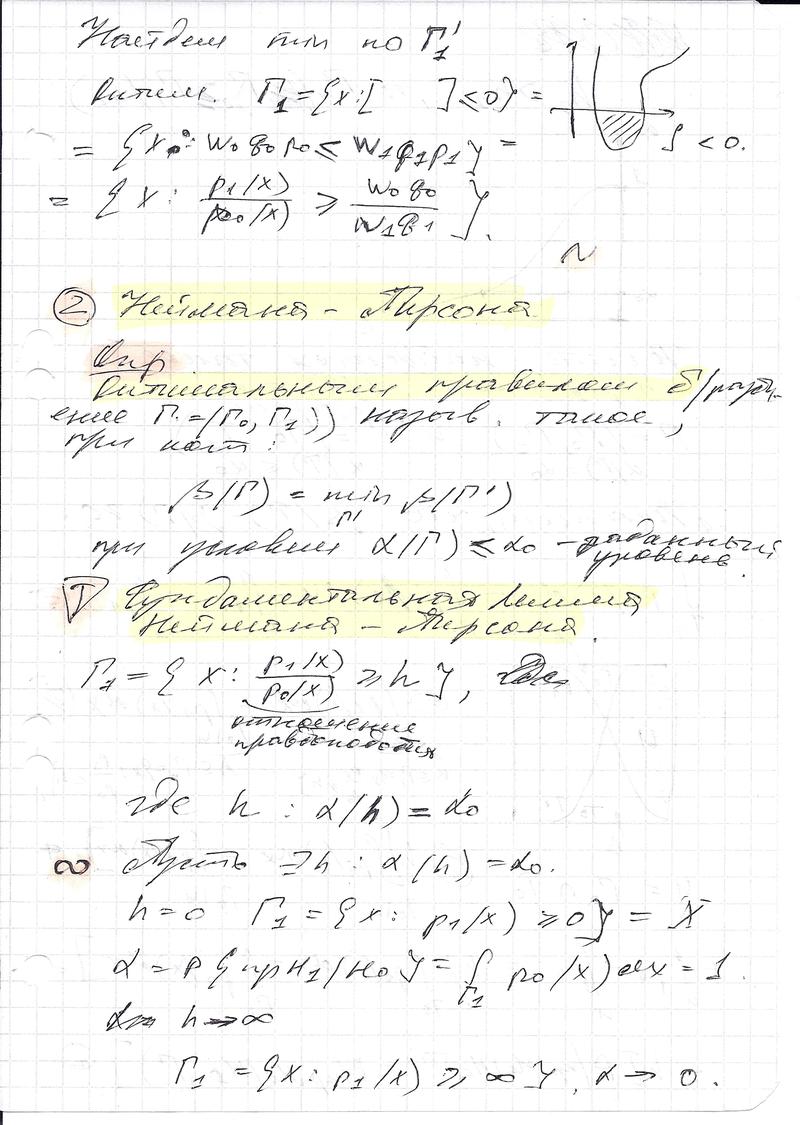 Найдем min по Γ₁'
Оптим. Γ₁ = {x: [ ] ≤ 0} =
∫ < 0.
= {x: w₀q₀p₀ ≤ w₁q₁p₁} =
= {x: p₁(x)/p₀(x) ≥ w₀q₀/w₁q₁}.
~
② Неймана – Пирсона
Опр
Оптимальным правилом б/разби-
ение Γ = (Γ₀, Γ₁)) назыв. такое,
при кот:
β(Γ) = min β(Γ')
Γ'
при условии α(Γ) ≤ α₀ – заданный
уровень.
Т Фундаментальная Лемма
Неймана – Пирсона.
Γ₁ = {x: p₁(x)/p₀(x) ≥ h}, где
отношение
правдоподобия
где h : α(h) = α₀
∞ Пусть ∃h : α(h) = α₀.
h = 0 Γ₁ = {x: p₁(x) ≥ 0} = X
α = P{пр H₁/H₀} = ∫ p₀(x)dx = 1.
Γ₁
h → ∞
Γ₁ = {x: p₁(x) ≥ ∞}, α → 0.